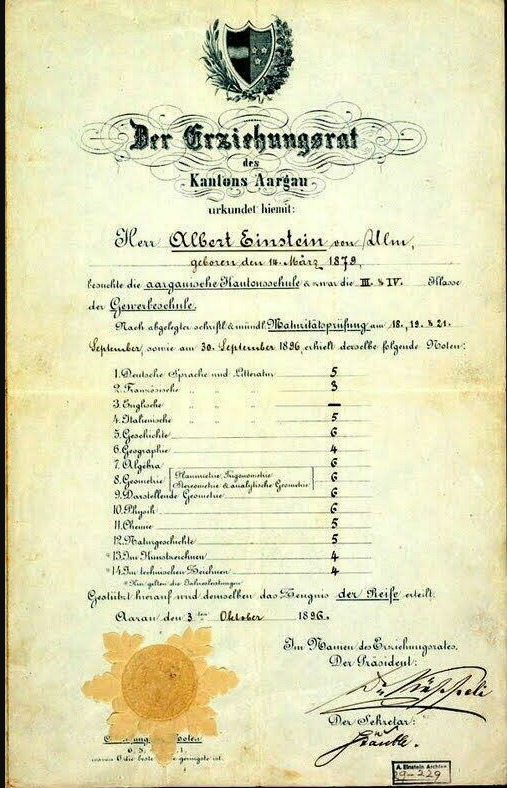 Der Erziehungsrat
des
Kantons Aargau
urkundet hiemit:
Herr Albert Einstein von Ulm,
geboren den 14. März 1879,
besuchte die aargauische Kantonsschule & zwar die III. & IV. Klasse
der Gewerbeschule.
Nach abgelegter schriftl. & mündl. Maturitätsprüfung am 18., 19. & 21.
September, sowie am 30. September 1896, erhielt derselbe folgende Noten:
1. Deutsche Sprache und Litteratur 5
2. Französische " " " 3
3. Englische " " " —
4. Italienische " " " 5
5. Geschichte 6
6. Geographie 4
7. Algebra 6
8. Geometrie [Planimetrie, Trigonometrie 6
Stereometrie & analytische Geometrie]
9. Darstellende Geometrie 6
10. Physik 6
11. Chemie 5
12. Naturgeschichte 5
*13. Im Kunstzeichnen 4
*14. Im technischen Zeichnen 4
*Hier gelten die Jahresleistungen.
Gestützt hierauf wird demselben das Zeugnis der Reife erteilt.
Aarau den 3ten Oktober 1896.
Im Namen des Erziehungsrates,
Der Präsident:
Der Sekretär:
Stäuble.
Noten
6. 5. 1.
wovon 6 die beste 1 die geringste ist.
A. Einstein Archive
29-229